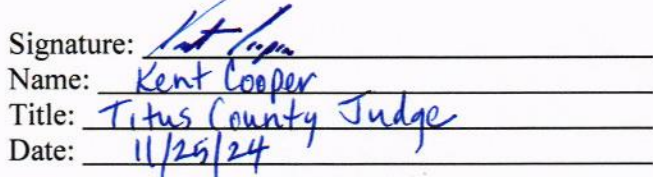 Signature:
Name: Kent Cooper
Title: Titus County Judge
Date: 11/25/24